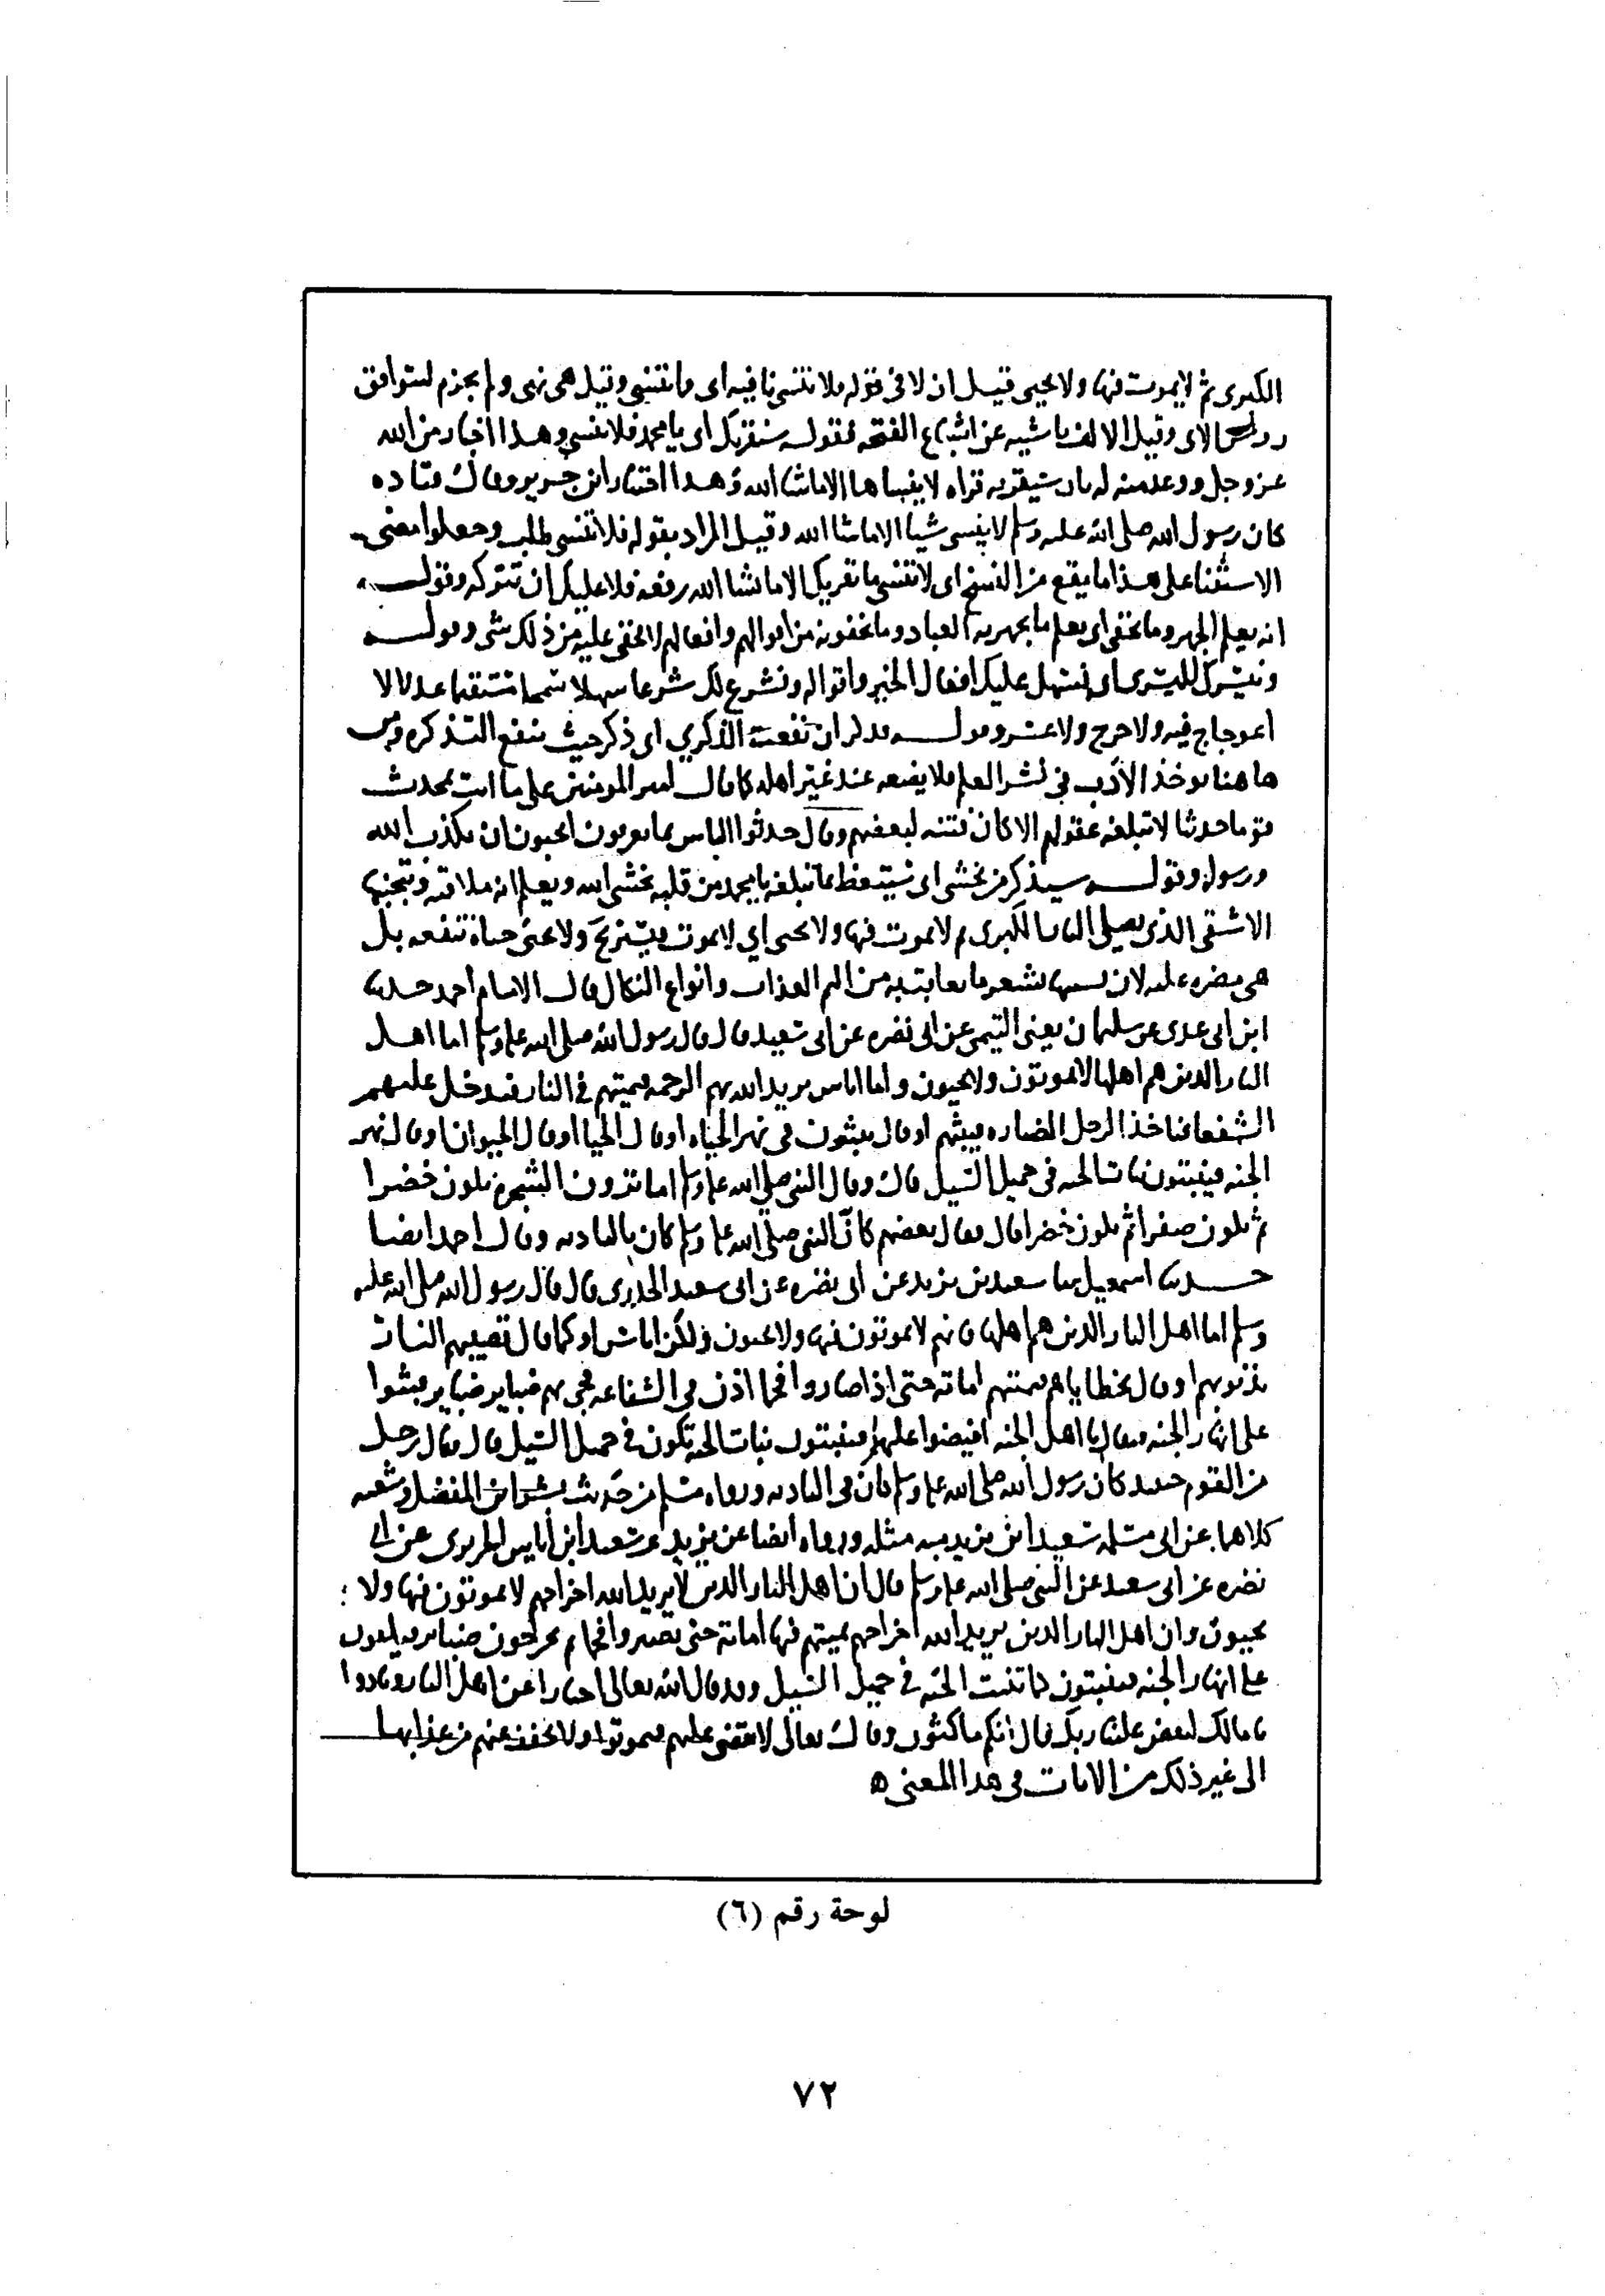 الكبرى ثم لا يموت فيها ولا يحيى قيل ان لا في قوله فلا تنسى نافيه اى ما تنسى وقيل هي نهي ولم يجزم لتوافق
روس الاى وقيل الالف ناشيه عن اشباع الفتحه فقوله سنقريك اى يا محمد فلا تنسى وهذا اخبار من الله
عز وجل ووعد منه له بان سيقريه قراه لا ينساها الا ما شا الله وهذا اختيار ابن جرير وقال قتاده
كان رسول الله صلى الله عليه وسلم لا ينسى شيا الا ما شا الله وقيل المراد بقوله فلا تنسى طلب وجعلوا معنى
الاستثنا على هذا ما يقع من النسخ اى لا تنسى ما نقريك الا ما يشا الله رفعه فلا عليك ان تتركه وقوله
انه يعلم الجهر وما يخفى اى يعلم ما يجهر به العباد وما يخفونه من اقوالهم وافعالهم لا يخفى عليه من ذلك شي وقوله
ونيسرك لليسرى اى نسهل عليك افعال الخير واقواله ونشرع لك شرعا سهلا سمحا مستقيما عدلا لا
اعوجاج فيه ولا حرج ولا عسر وقوله فذكر ان نفعت الذكري اى ذكر حيث تنفع التذكره ومن
هاهنا يوخذ الادب في نشر العلم فلا يضعه عند غير اهله كما قال امير المومنين على ما انت بمحدث
قوما حديثا لا تبلغه عقولهم الا كان فتنه لبعضهم وقال حدثوا الناس بما يعرفون اتحبون ان يكذب الله
ورسوله وقوله سيذكر من يخشى اى سيتعظ بما تبلغه يا محمد من قلبه يخشى الله ويعلم انه ملاقيه ويتجنبها
الاشقى الذى يصلى النار الكبرى ثم لا يموت فيها ولا يحيى اي لا يموت فيستريح ولا يحيى حياة تنفعه بل
هي مضره عليه لان بسببها يشعر ما يعاقب به من اليم العذاب وانواع النكال قال الامام احمد حدثنا
ابن ابي عدى عن سليمان يعني التيمي عن ابي نضره عن ابي سعيد قال قال رسول الله صلى الله عليه وسلم اما اهل
النار الذين هم اهلها لا يموتون ولا يحيون واما اناس يريد الله بهم الرحمه فيميتهم في النار فيدخل عليهم
الشفعا فياخذ الرجل الضباره فيبثهم او قال يبثون في نهر الحياه او قال الحيا او قال الحيوان او قال نهر
الجنه فينبتون نبات الحبه في حميل السيل قال وقال النبي صلى الله عليه وسلم اما ترون الشجره تكون خضرا
ثم تكون صفرا ثم تكون خضرا قال فقال بعضهم كان النبي صلى الله عليه وسلم كان بالباديه وقال احمد ايضا
حدثنا اسمعيل ثنا سعيد بن يزيد عن ابي نضره عن ابي سعيد الخدرى قال قال رسول الله صلى الله عليه
وسلم اما اهل النار الذين هم اهلها فانهم لا يموتون فيها ولا يحيون ولكن اناس او كما قال تصيبهم النار
بذنوبهم او قال بخطاياهم فيميتهم اماته حتى اذا صاروا فحما اذن في الشفاعه فجي بهم ضباير ضباير فبثوا
على انهار الجنه فيقال يا اهل الجنه افيضوا عليهم فينبتون نبات الحبه تكون في حميل السيل قال فقال رجل
من القوم حينيذ كان رسول الله صلى الله عليه وسلم كان في الباديه ورواه مسلم من حديث بشر ابن المفضل وشعبه
كلاهما عن ابي مسلمه سعيد ابن يزيد به مثله ورواه ايضا عن يزيد عن سعيد ابن اياس الجريرى عن ابي
نضره عن ابي سعيد عن النبي صلى الله عليه وسلم قال ان اهل النار الذين لا يريد الله اخراجهم لا يموتون فيها ولا
يحيون وان اهل النار الذين يريد الله اخراجهم يميتهم فيها اماتة حتى يصيروا فحما ثم يخرجون ضباير فيلقون
على انهار الجنه فينبتون كما تنبت الحبه في حميل السيل وقد قال الله تعالى اخبارا عن اهل النار ونادوا
يا مالك ليقض علينا ربك قال انكم ماكثون وقال تعالى لا يقضى عليهم فيموتوا ولا يخفف عنهم من عذابها
الى غير ذلك من الايات في هذا المعنى ه
لوحة رقم (٦)
٧٢